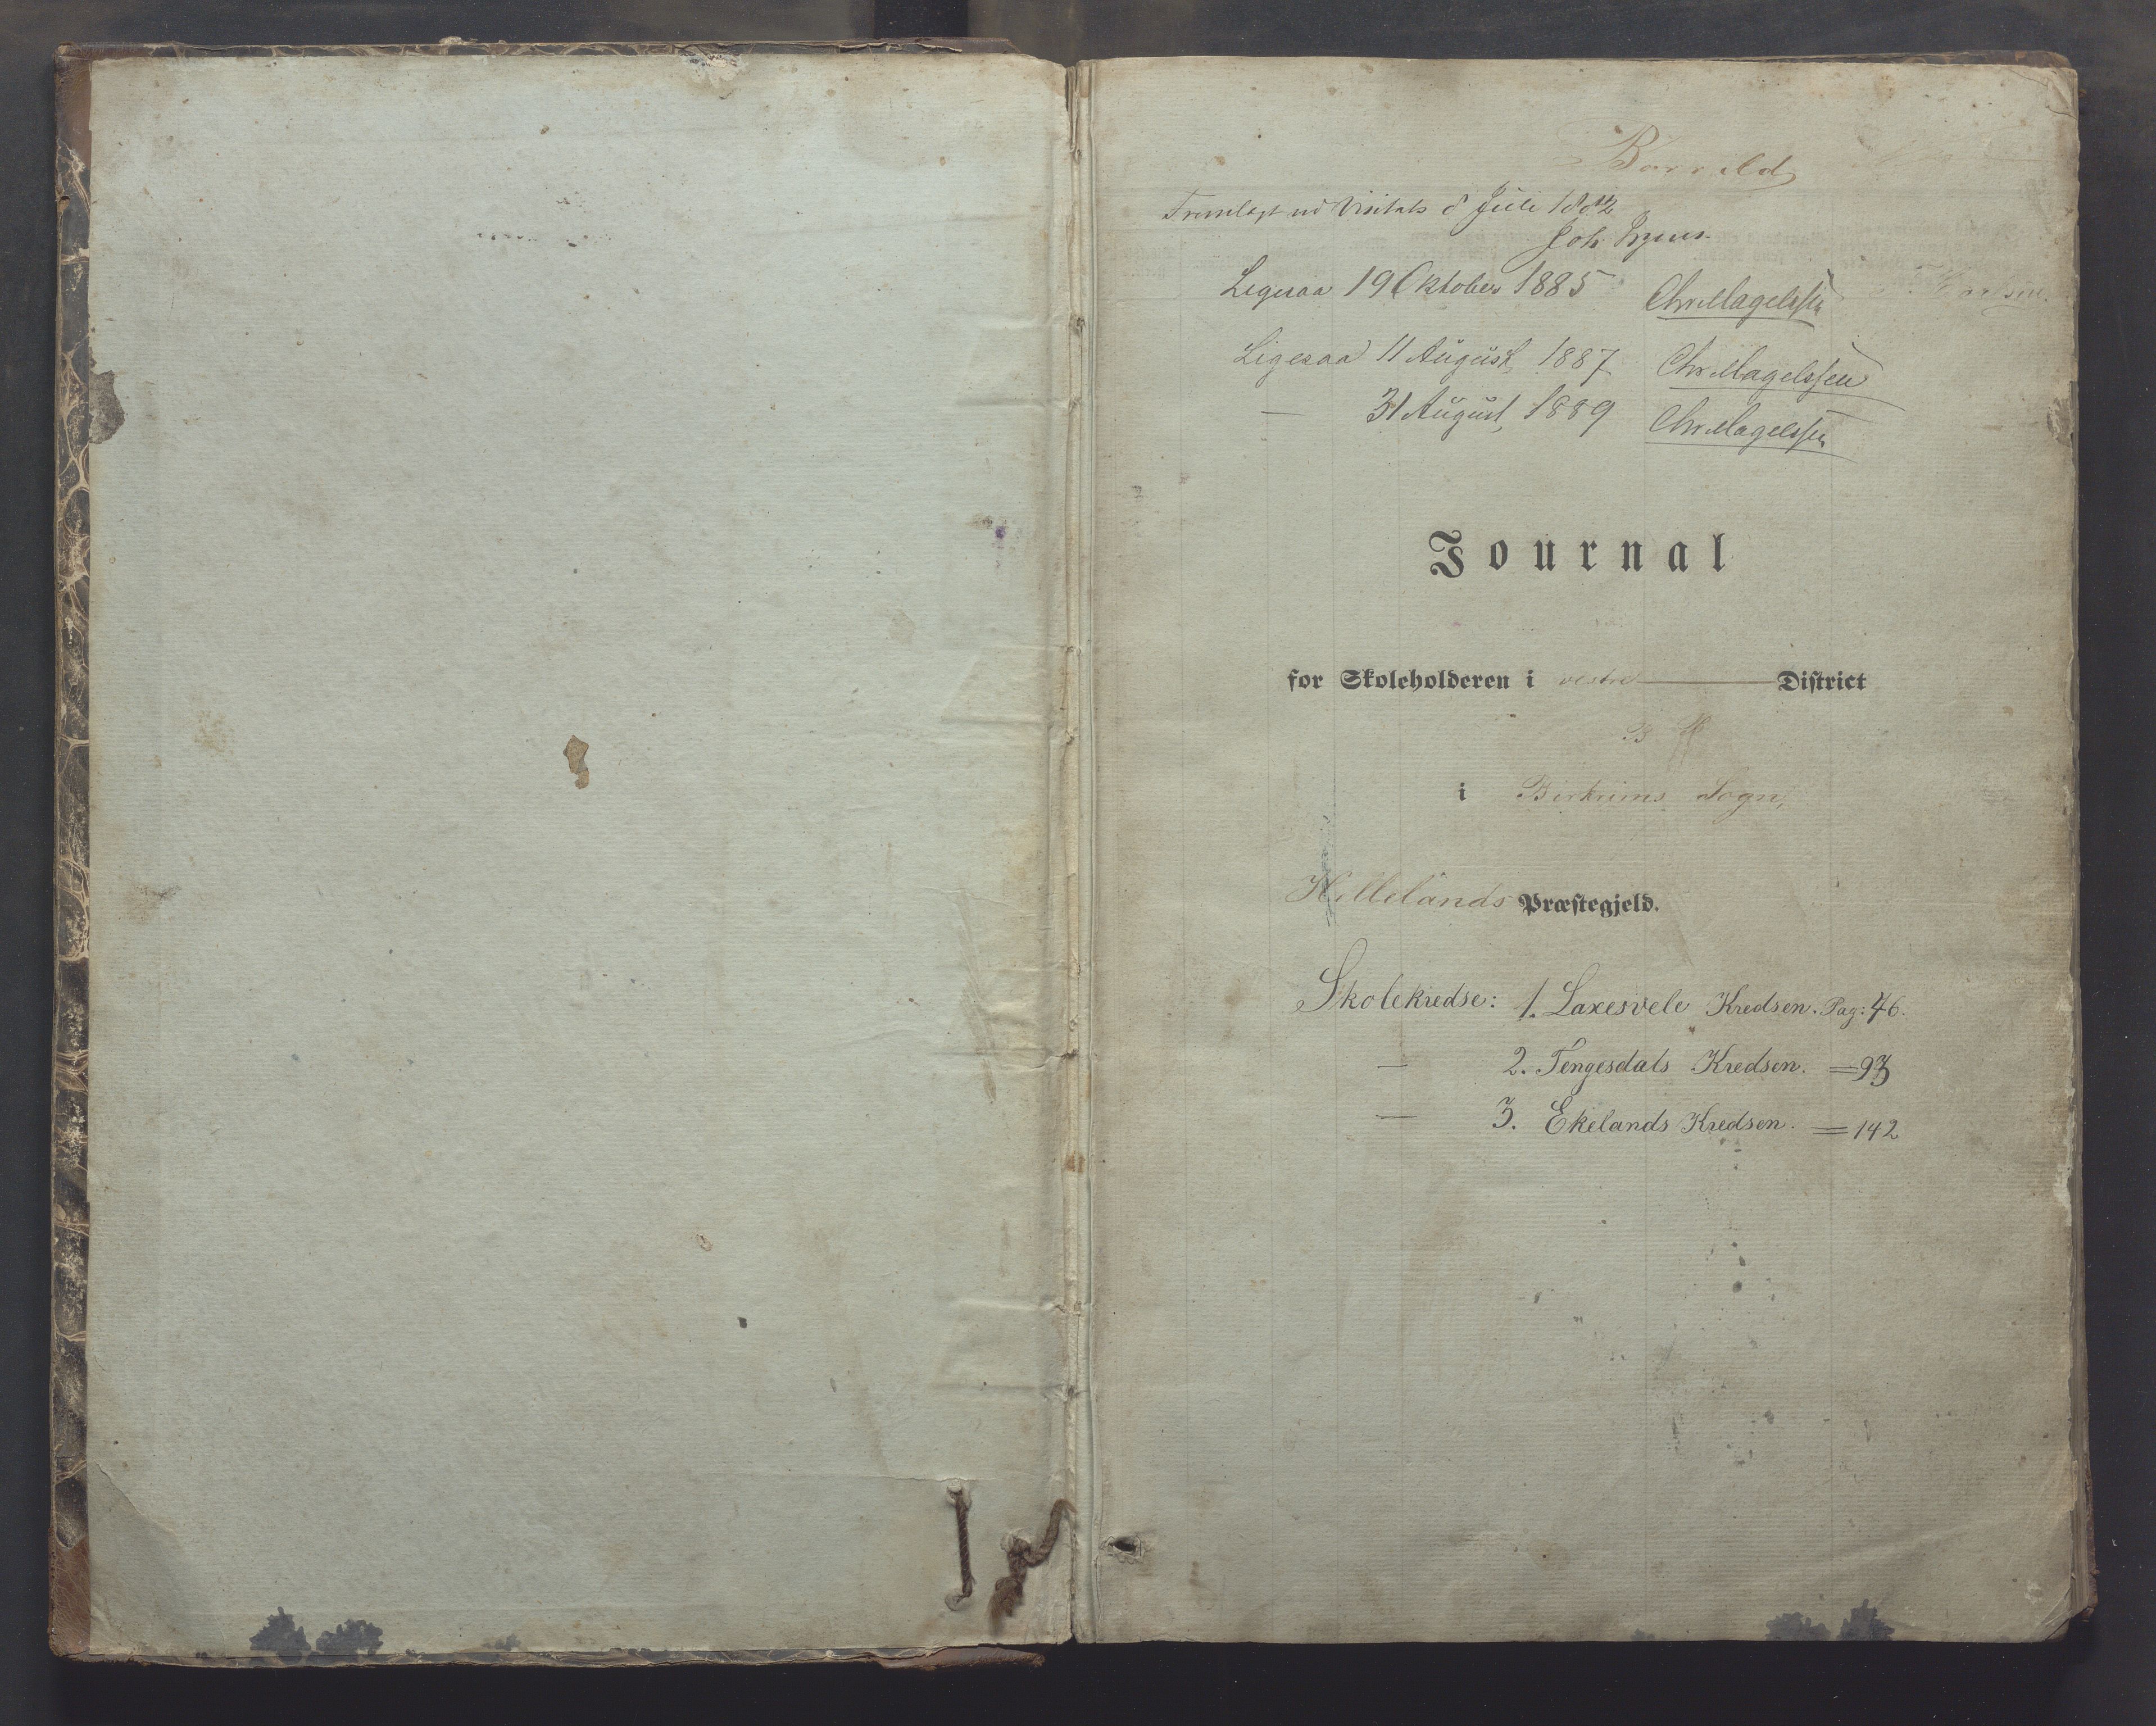 Fremlagt ved Visitats 8 Juli 1882
Joh.
Ligesaa 19 Oktober 1885 Chr. Magelssen
Ligesaa 11 August, 1887 Chr. Magelssen
— 31 August, 1889 Chr. Magelssen
Journal
for Skoleholderen i vestre District
i Birkrims Sogn,
Hellelands Præstegjeld.
Skolekredse: 1. Laxesvele Kredsen. Pag: 46.
— 2. Tengesdals Kredsen. = 93
— 3. Ekelands Kredsen. = 142